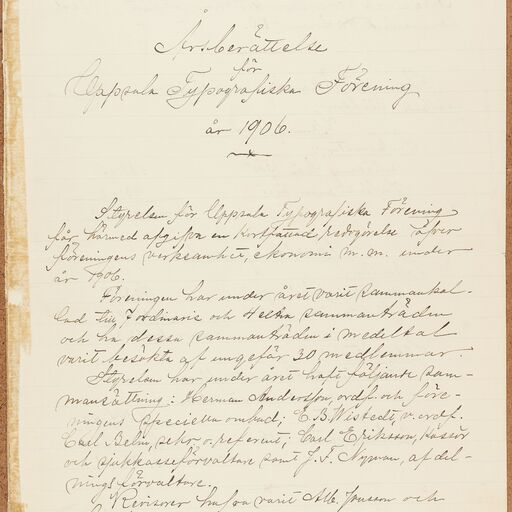 Årsberättelse
för
Uppsala Typografiska Förening
år 1906.
Styrelsen för Uppsala Typografiska Förening
får härmed afgifva en kortfattad redogörelse öfver
föreningens verksamhet, ekonomi m.m. under
år 1906.
Föreningen har under året varit sammankal-
lad till 7 ordinarie och 4 extra sammanträden
och ha dessa sammanträden i medeltal
varit besökta af ungefär 30 medlemmar.
Styrelsen har under året haft följande sam-
mansättning: Herman Andersson, ordf. och före-
ningens speciella ombud; E. B. Wistedt, v. ordf.
Carl sekr. o. referent; Carl Eriksson, kassör
och sjukkasseförvaltare samt J. F. Nyman, afdel-
ningsförvaltare.
Revisorer hafva varit Alb. Jonsson och